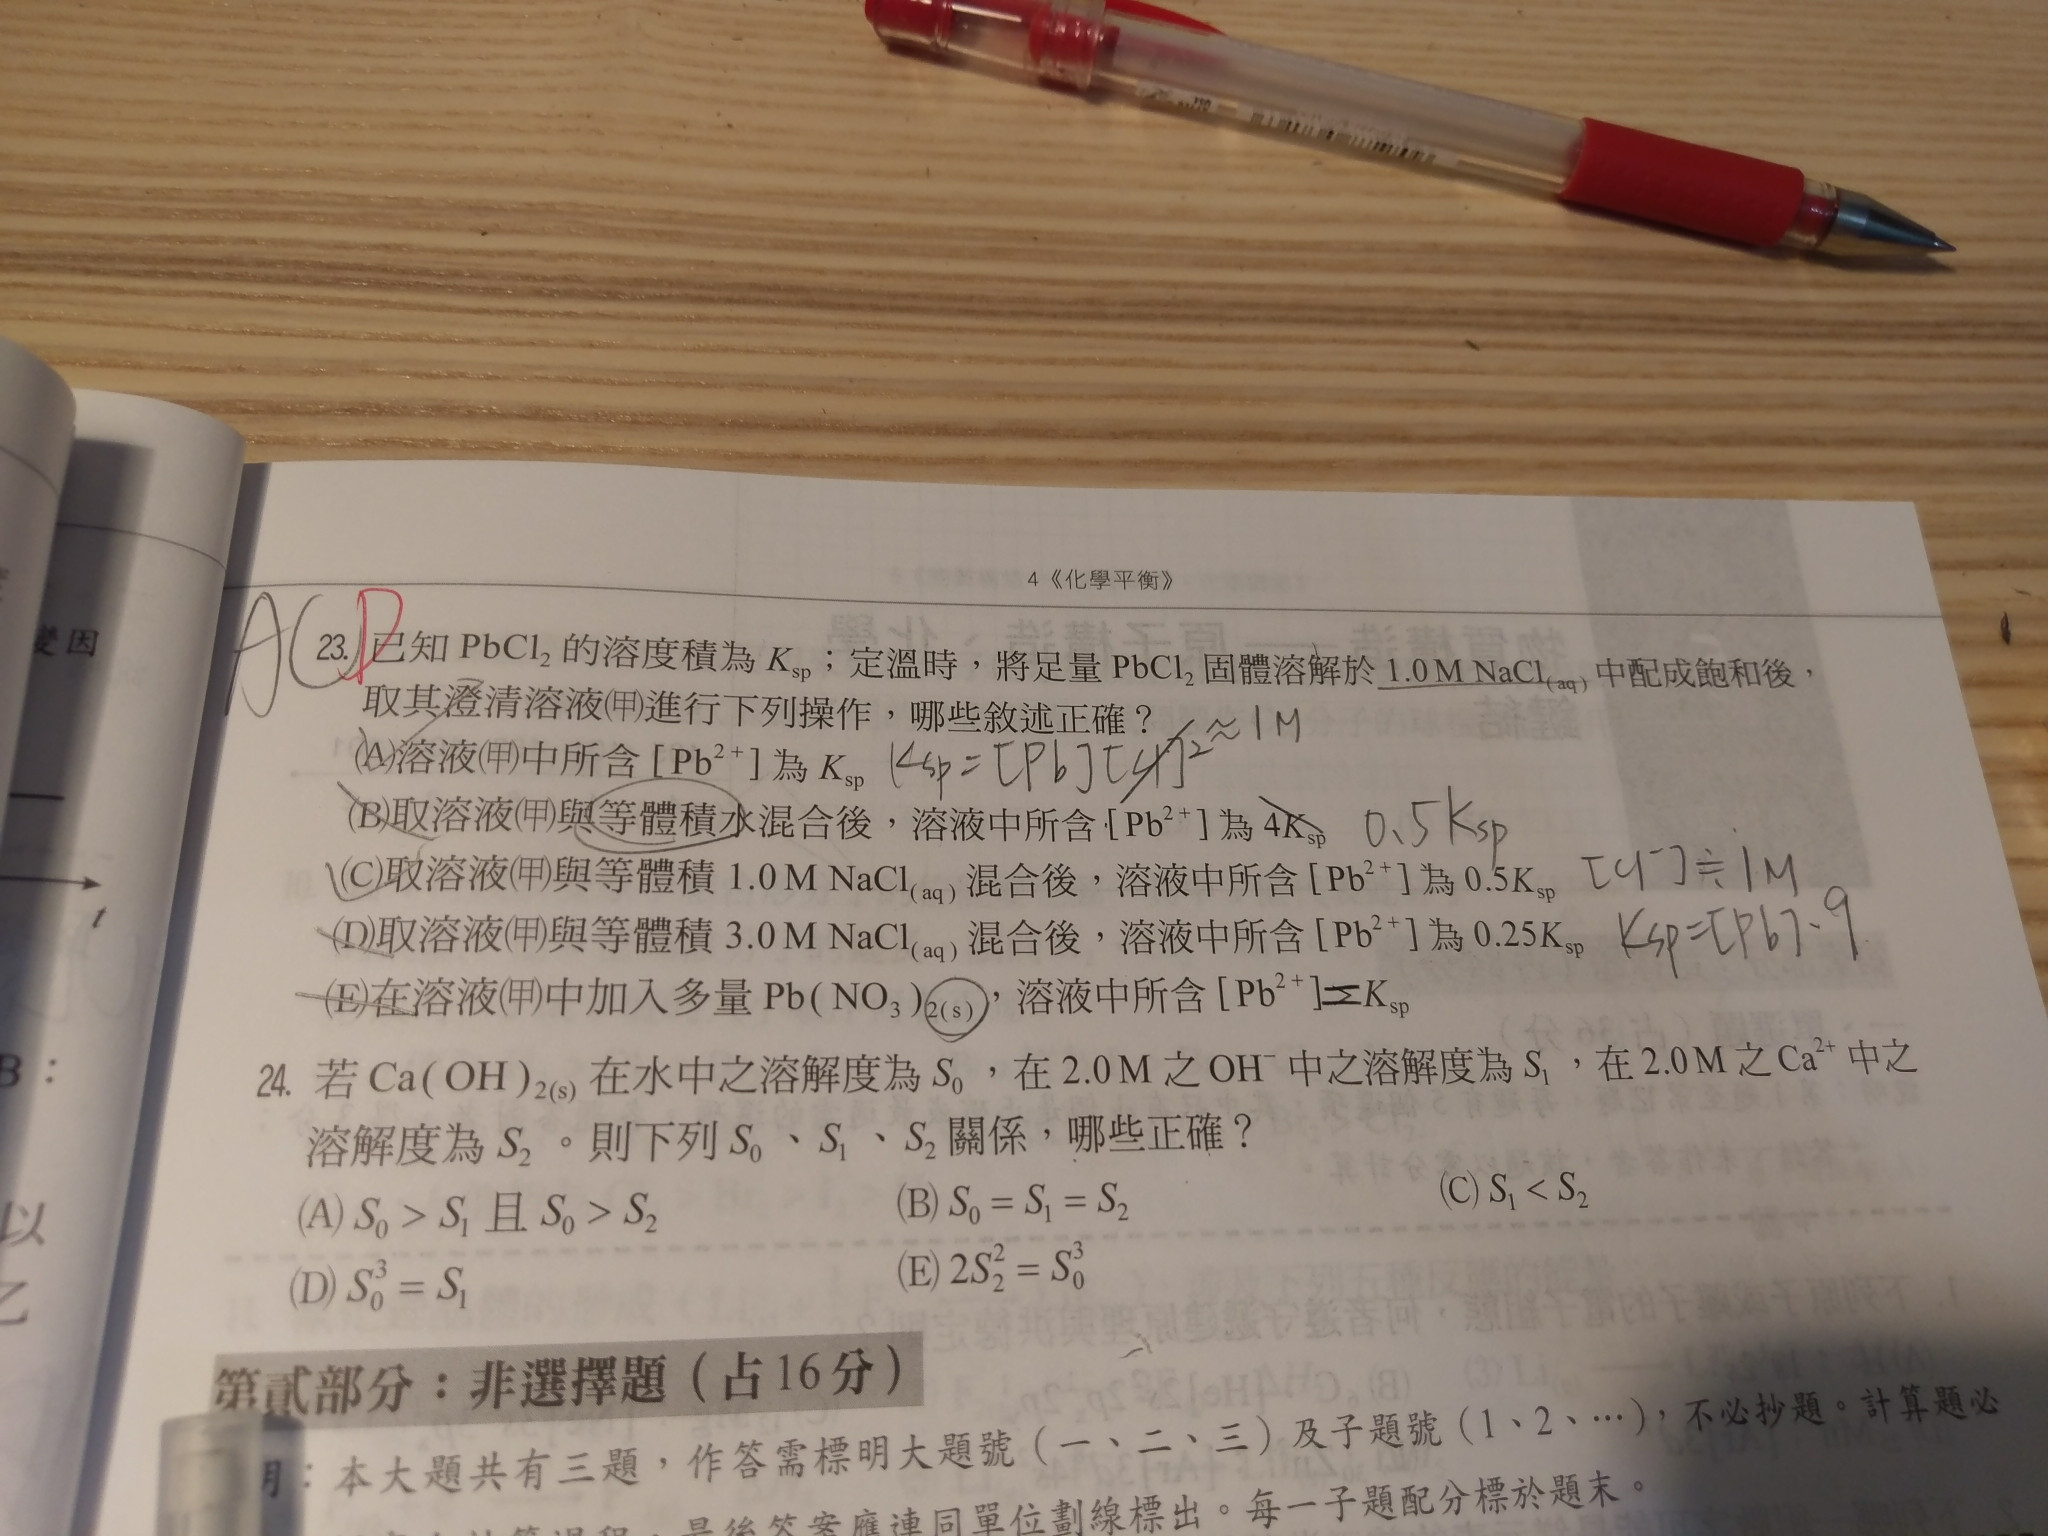 4《化學平衡》
ACD
23. 已知 PbCl₂ 的溶度積為 Ksp；定溫時，將足量 PbCl₂ 固體溶解於 1.0 M NaCl(aq) 中配成飽和後，
取其澄清溶液(甲)進行下列操作，哪些敘述正確？
(A)溶液(甲)中所含 [Pb²⁺] 為 Ksp Ksp = [Pb][Cl]² ≈ 1M
(B)取溶液(甲)與等體積水混合後，溶液中所含 [Pb²⁺] 為 4Ksp 0.5Ksp
(C)取溶液(甲)與等體積 1.0 M NaCl(aq) 混合後，溶液中所含 [Pb²⁺] 為 0.5Ksp [Cl⁻]≒1M
(D)取溶液(甲)與等體積 3.0 M NaCl(aq) 混合後，溶液中所含 [Pb²⁺] 為 0.25Ksp Ksp=[Pb]·9
(E)在溶液(甲)中加入多量 Pb(NO₃)₂(s)，溶液中所含 [Pb²⁺]=Ksp
24. 若 Ca(OH)₂(s) 在水中之溶解度為 S₀，在 2.0 M 之 OH⁻ 中之溶解度為 S₁，在 2.0 M 之 Ca²⁺ 中之
溶解度為 S₂。則下列 S₀、S₁、S₂ 關係，哪些正確？
(A) S₀ > S₁ 且 S₀ > S₂ (B) S₀ = S₁ = S₂ (C) S₁ < S₂
(D) S₀³ = S₁ (E) 2S₂² = S₀³
第貳部分：非選擇題（占16分）
明：本大題共有三題，作答需標明大題號（一、二、三）及子題號（1、2、…），不必抄題。計算題必
最後答案應連同單位劃線標出。每一子題配分標於題末。
變因
t
B：
以
乙